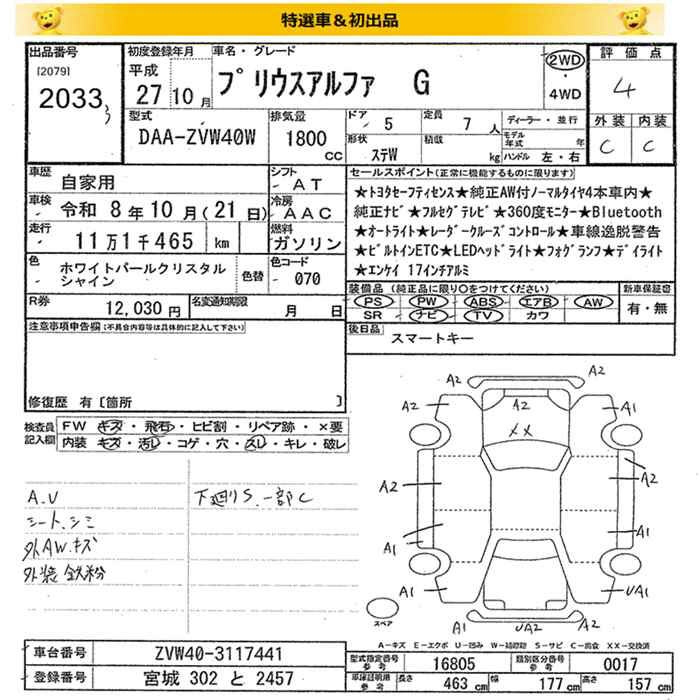 特選車＆初出品
出品番号
[2079]
2033
初度登録年月
平成
27 10 月
車名・グレード
プリウスアルファ G
2WD
・
4WD
評価点
4
外装 内装
C C
型式
DAA-ZVW40W
排気量
1800
CC
ドア
5
定員
7 人
形状
ステW
積載
kg
ディーラー・並行
モデル年式 年
ハンドル 左・右
車歴
自家用
シフト
AT
車検
令和 8年 10月(21日)
冷房
AAC
走行
11万1千465 km
燃料
ガソリン
色
ホワイトパールクリスタル
シャイン
色替
色コード
070
R券
12,030 円
名変通知期限
月 日
セールスポイント(正常に機能するものに限ります)
★トヨタセーフティセンス★純正AW付ノーマルタイヤ4本車内★
純正ナビ★フルセグテレビ★360度モニター★Bluetooth
★オートライト★レーダークルーズコントロール★車線逸脱警告
★ビルトインETC★LEDヘッドライト★フォグランプ★デイライト
★エンケイ 17インチアルミ
装備品 (純正品に限り○をつけてください)
PS PW ABS エアB AW
SR ナビ TV カワ
新車保証書
有・無
後日品
スマートキー
注意事項申告欄(不具合内容等は具体的に記入して下さい)
修復歴 有 [箇所 ]
検査員
記入欄
FW キズ・飛石・ヒビ割・リペア跡・×要
内装 キズ・汚レ・コゲ・穴・スレ・キレ・破レ
A.V
シート.シミ
外AW.キズ
外装 鉄粉
下廻りS.一部C
A2 A2
A2 A2 A1
XX
A2 A2
A2
A1 A1
A1 UA1
A1 UA2 A2
スペア
A-キズ E-エクボ U-凹み W-補修跡 S-サビ C-腐食 XX-交換済
車台番号
ZVW40-3117441
登録番号
宮城 302 と 2457
型式指定番号
参考
16805
類別区分番号
参考
0017
車検証明用
参考
長さ
463 cm
幅
177 cm
高さ
157 cm